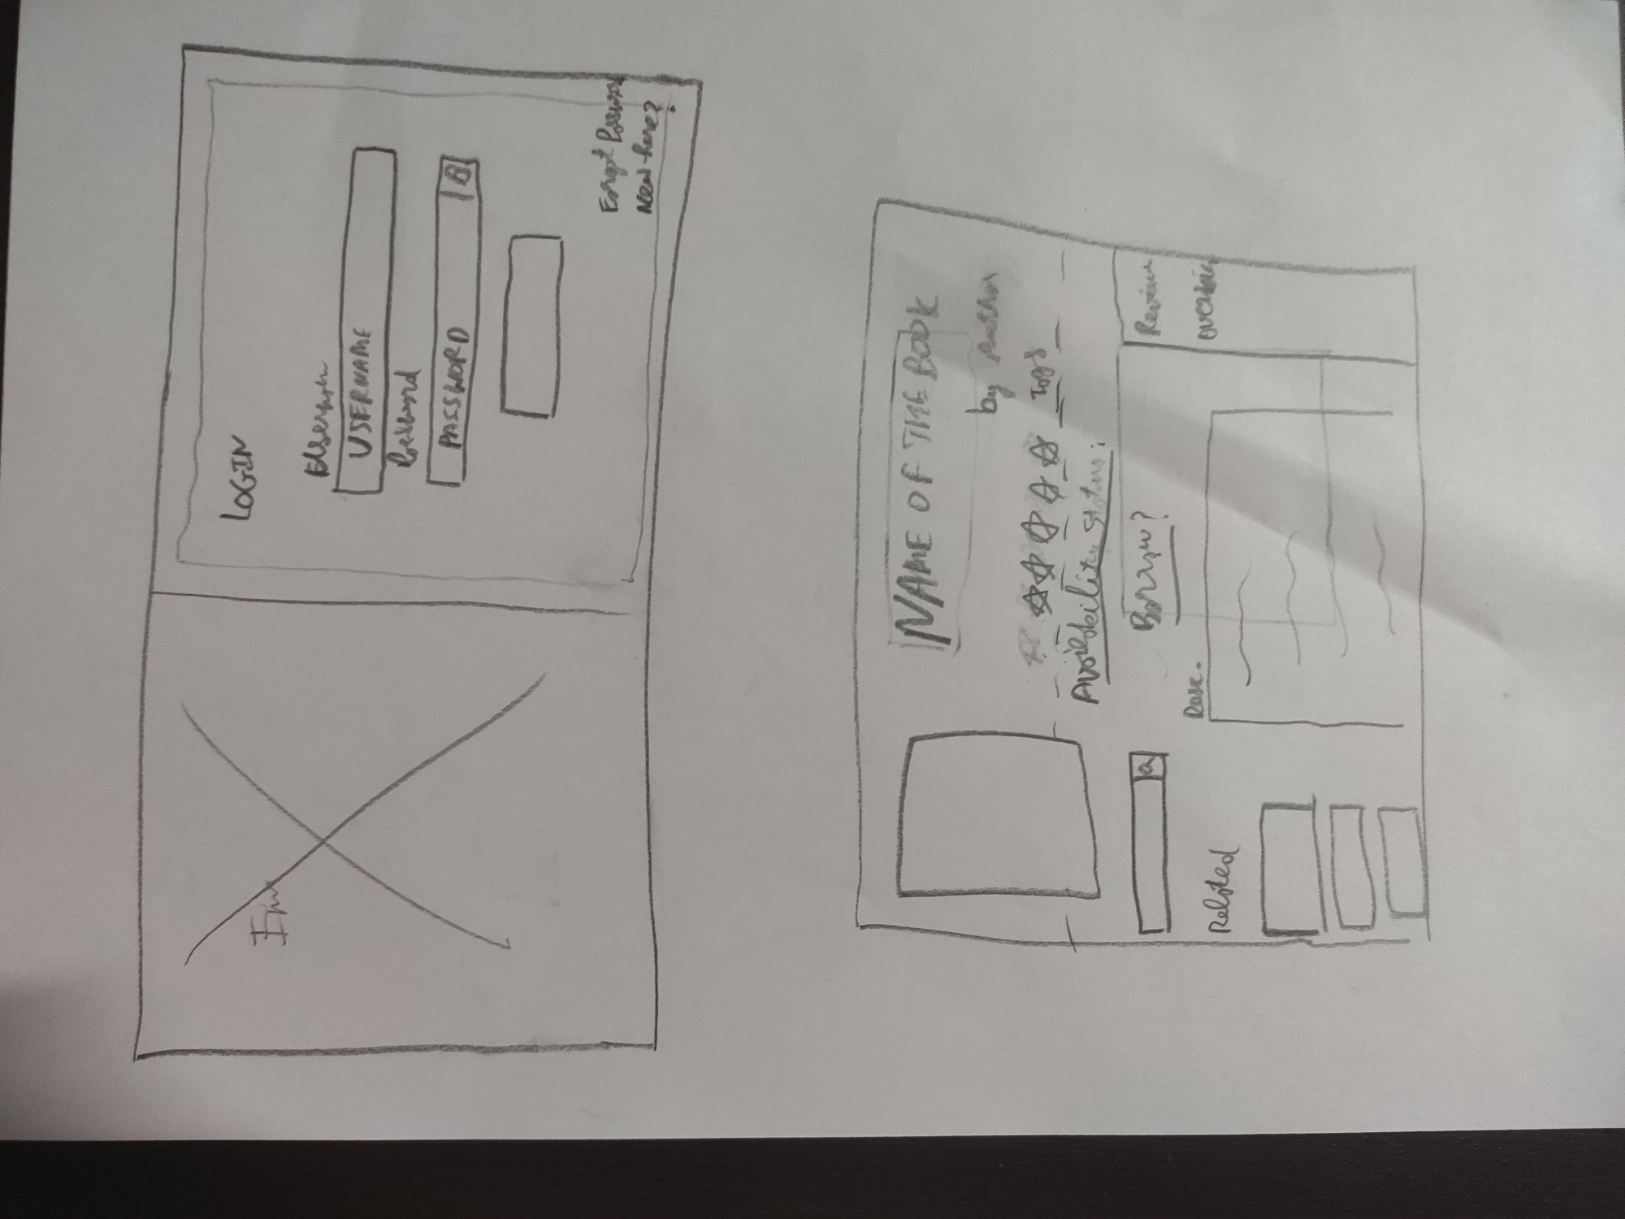 Img
LOGIN
Username
USERNAME
Password
PASSWORD
Forgot Password
New here?
NAME OF THE BOOK
by Author
Tags
Availability Status:
Borrow?
Review
Desc.
Related